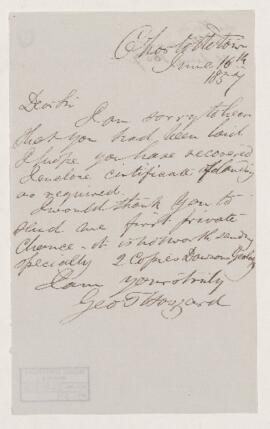 Charlottetown
June 16th
Dear Sir
I am sorry to hear
that you had been laid
I hope you have recovered
I enclose certificate of planting
as required.
I would thank you to
send me first private
chance - it is not worth sending
specially 2 Copies Dawsons Geology
I am yours truly
Geo T Haszard